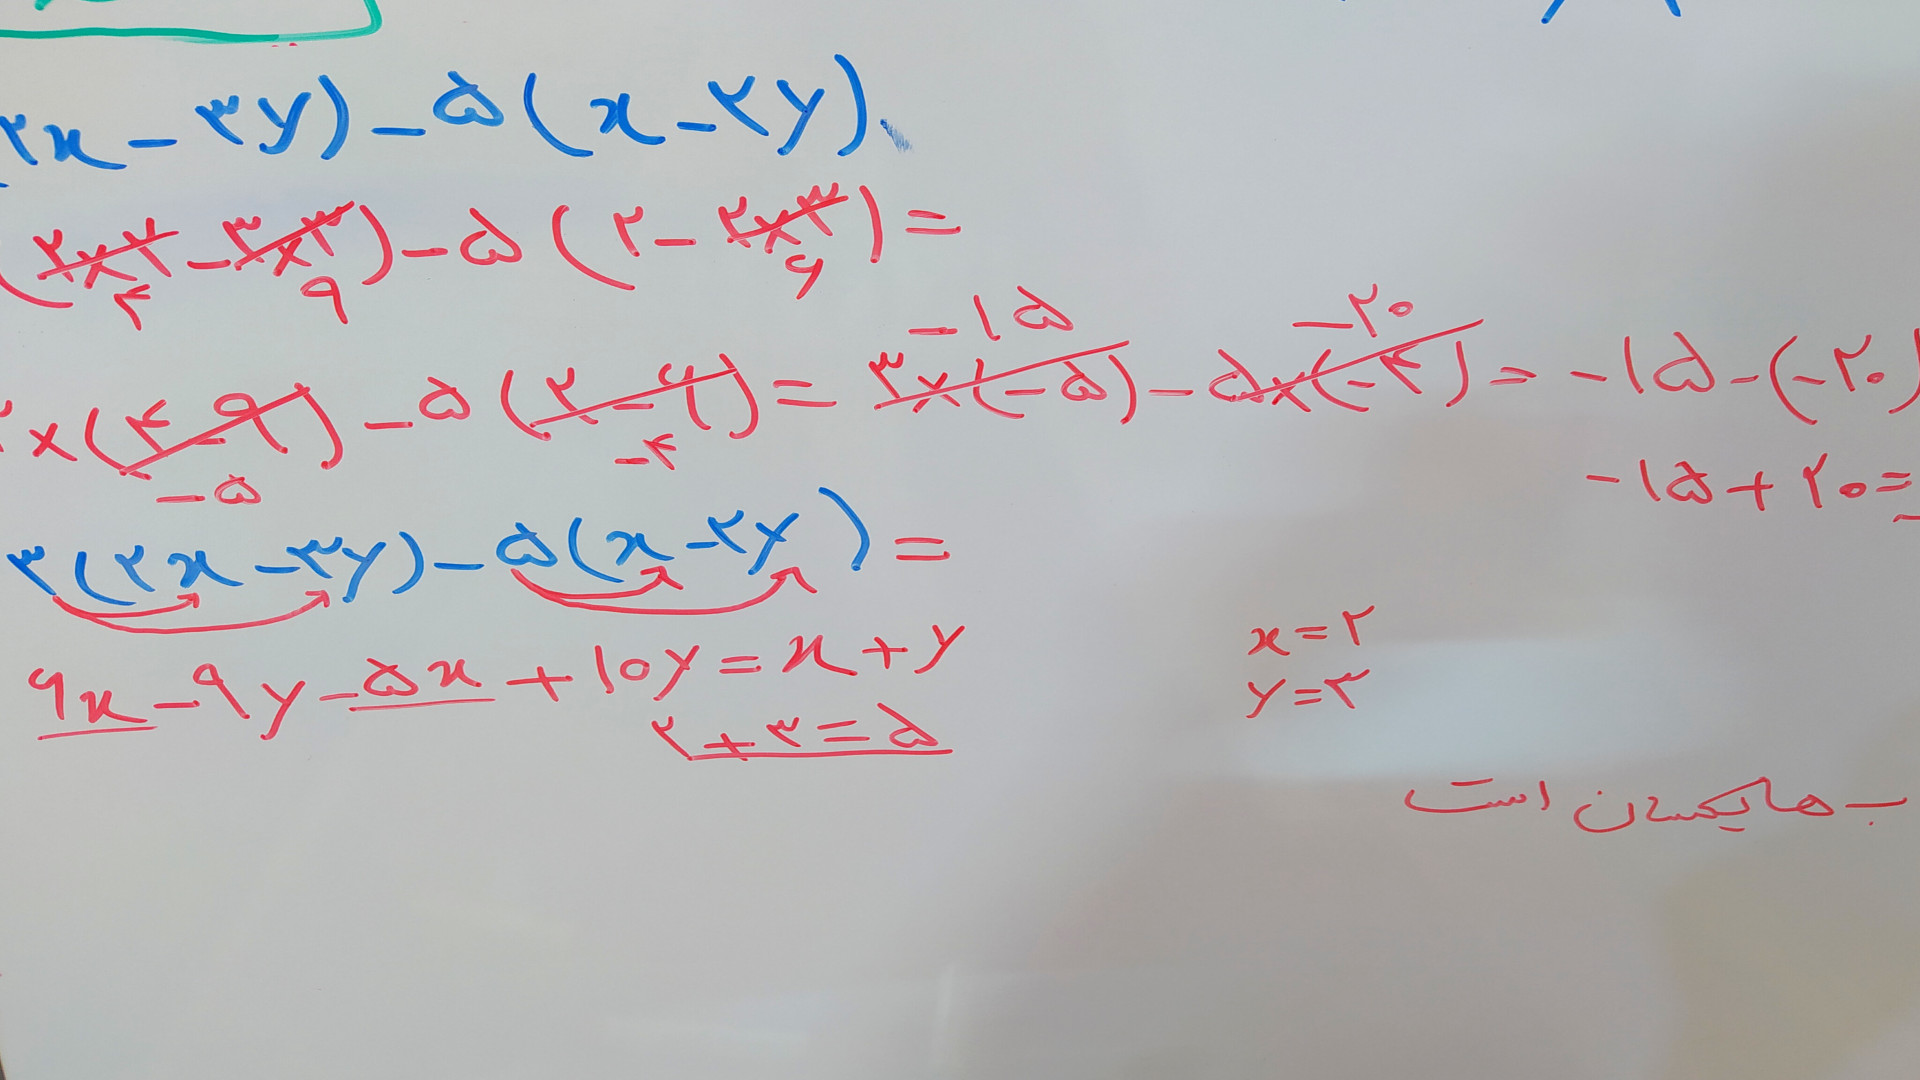 ۲x - ۳y) - ۵(x - ۲y)
(۲×۲ - ۳×۳) - ۵(۲ - ۲×۳) =
۴ ۹ ۶
×(۴-۹) - ۵(۲-۶) = ۳×(-۵) - ۵×(-۴) = -۱۵-(-۲۰)
-۵ -۴ -۱۵ -۲۰
-۱۵+۲۰=
۳(۲x - ۳y) - ۵(x - ۲y) =
۶x - ۹y - ۵x + ۱۰y = x + y
۲+۳=۵
x=۲
y=۳
یکسان است